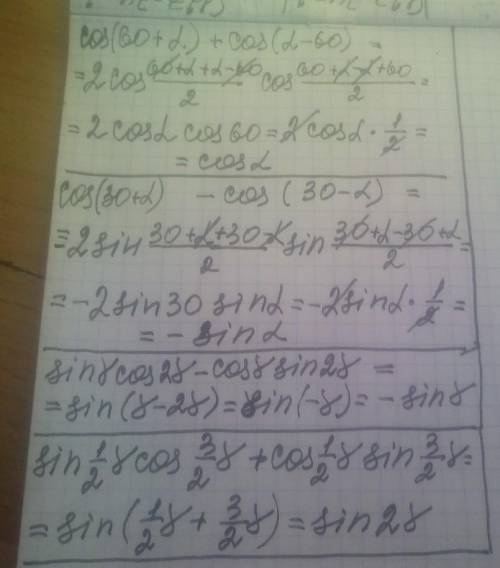 cos(60+α) + cos(α-60) =
= 2 cos (60+α+α-60)/2 cos (60+α-α+60)/2 =
= 2 cosα cos60 = 2 cosα · 1/2 =
= cosα
cos(30+α) - cos(30-α) =
= 2 sin (30+α+30-α)/2 sin (30+α-30+α)/2 =
= -2 sin30 sinα = -2 sinα · 1/2 =
= - sinα
sinγ cos2γ - cosγ sin2γ =
= sin(γ-2γ) = sin(-γ) = - sinγ
sin 1/2 γ cos 3/2 γ + cos 1/2 γ sin 3/2 γ =
= sin(1/2 γ + 3/2 γ) = sin2γ